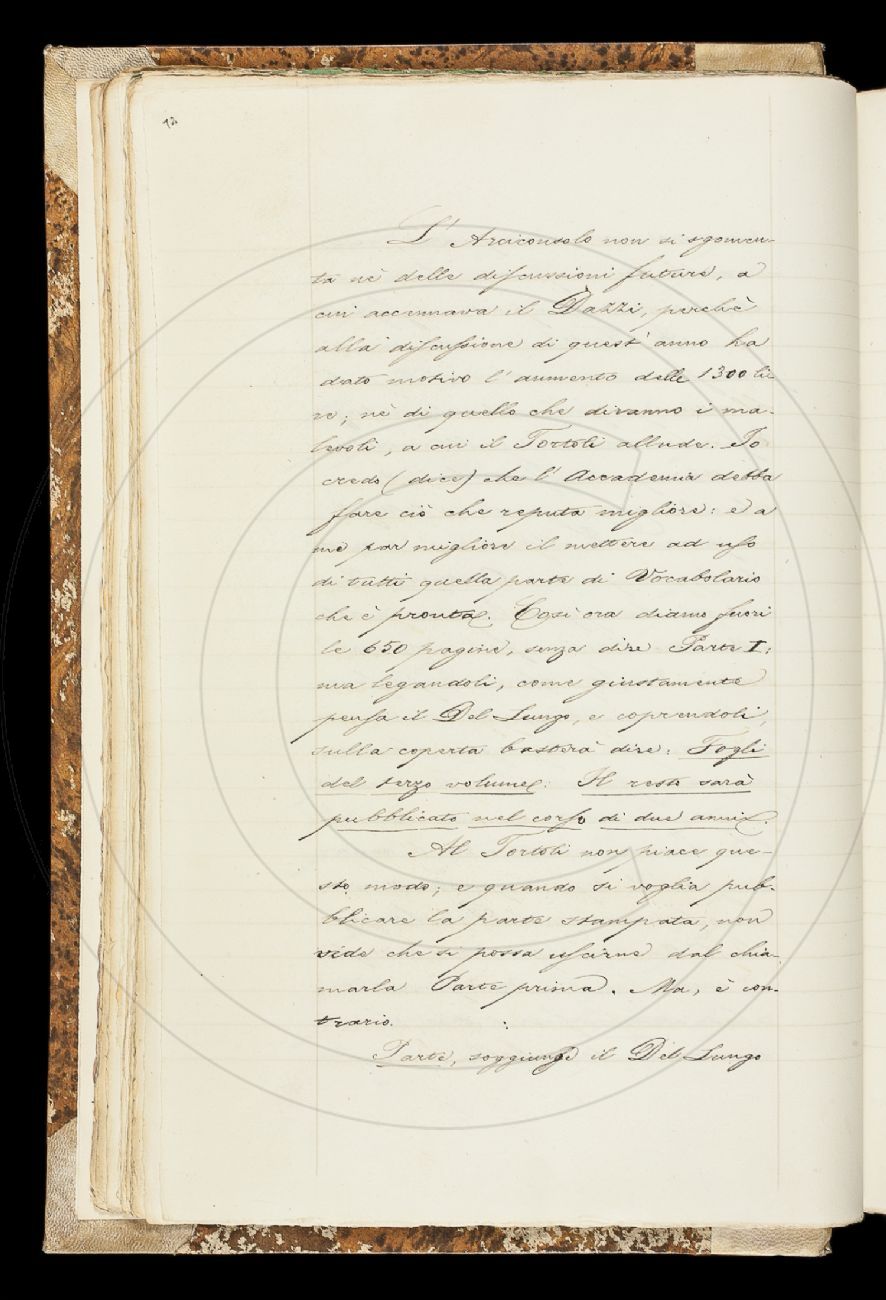 12
L' Arciconsolo non si sgomen-
ta nè delle discussioni future, a
cui accennava il Dazzi, perchè
alla discussione di quest' anno ha
dato motivo l' aumento delle 1300 li-
re; nè di quello che diranno i ma-
levoli, a cui il Tortoli allude. Io
credo (dice) che l' Accademia debba
fare ciò che reputa migliore: e a
me par migliore il mettere ad uso
di tutti quella parte di Vocabolario
che è pronta. Così ora diamo fuori
le 650 pagine, senza dire Parte I:
ma legandoli, come giustamente
pensa il Del Lungo, e coprendoli,
sulla coperta basterà dire: Fogli
del terzo volume: Il resto sarà
pubblicato nel corso di due anni.
Al Tortoli non piace que-
sto modo; e quando si voglia pub-
blicare la parte stampata, non
vede che si possa uscirne dal chia-
marla Parte prima. Ma, è con-
trario.
Parte, soggiunge il Del Lungo